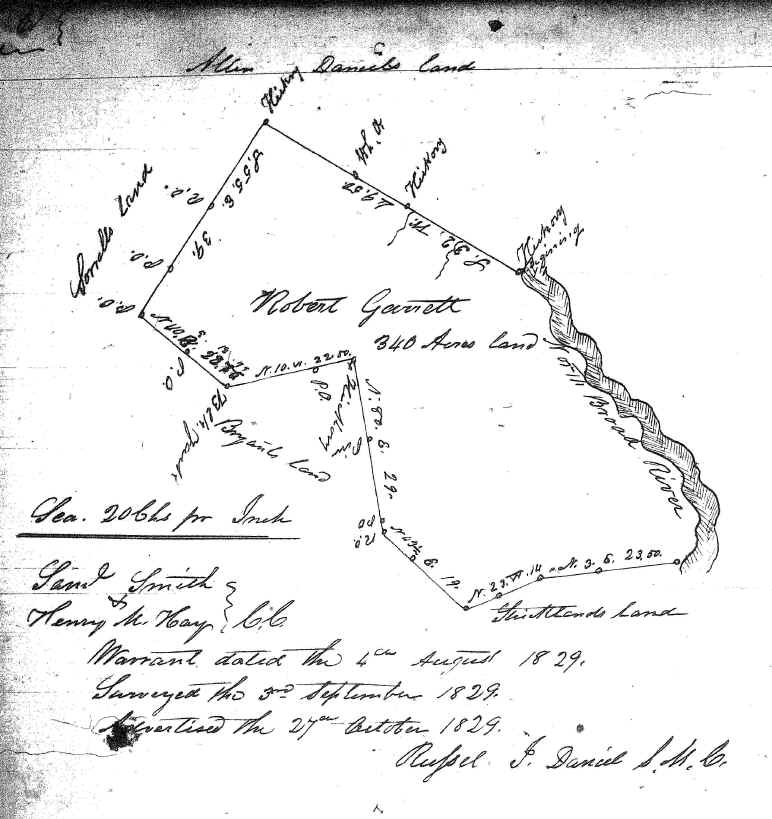 Allen Daniels land
Hickory
S. 55. E.
39.
P.O.
P.O.
Sorrells Land
49.50
Hickory
Hickory
Begining
Robert Garrett
340 Acres land
North Broad River
N. 10. W. 22.50.
P.O.
Hickory
Pin
Bryants land
N. 80. E. 29.
P.O.
E. 17.
N. 23. W. 14
N. 3. E. 23.50.
Stricklands Land
Sca. 20 Chs pr Inch
Saml Smith
&
Henry M. Hay } C.C.
Warrant dated the 4th August 1829.
Surveyed the 3rd September 1829.
Advertised the 27th October 1829.
Russel J. Daniel S.M.C.